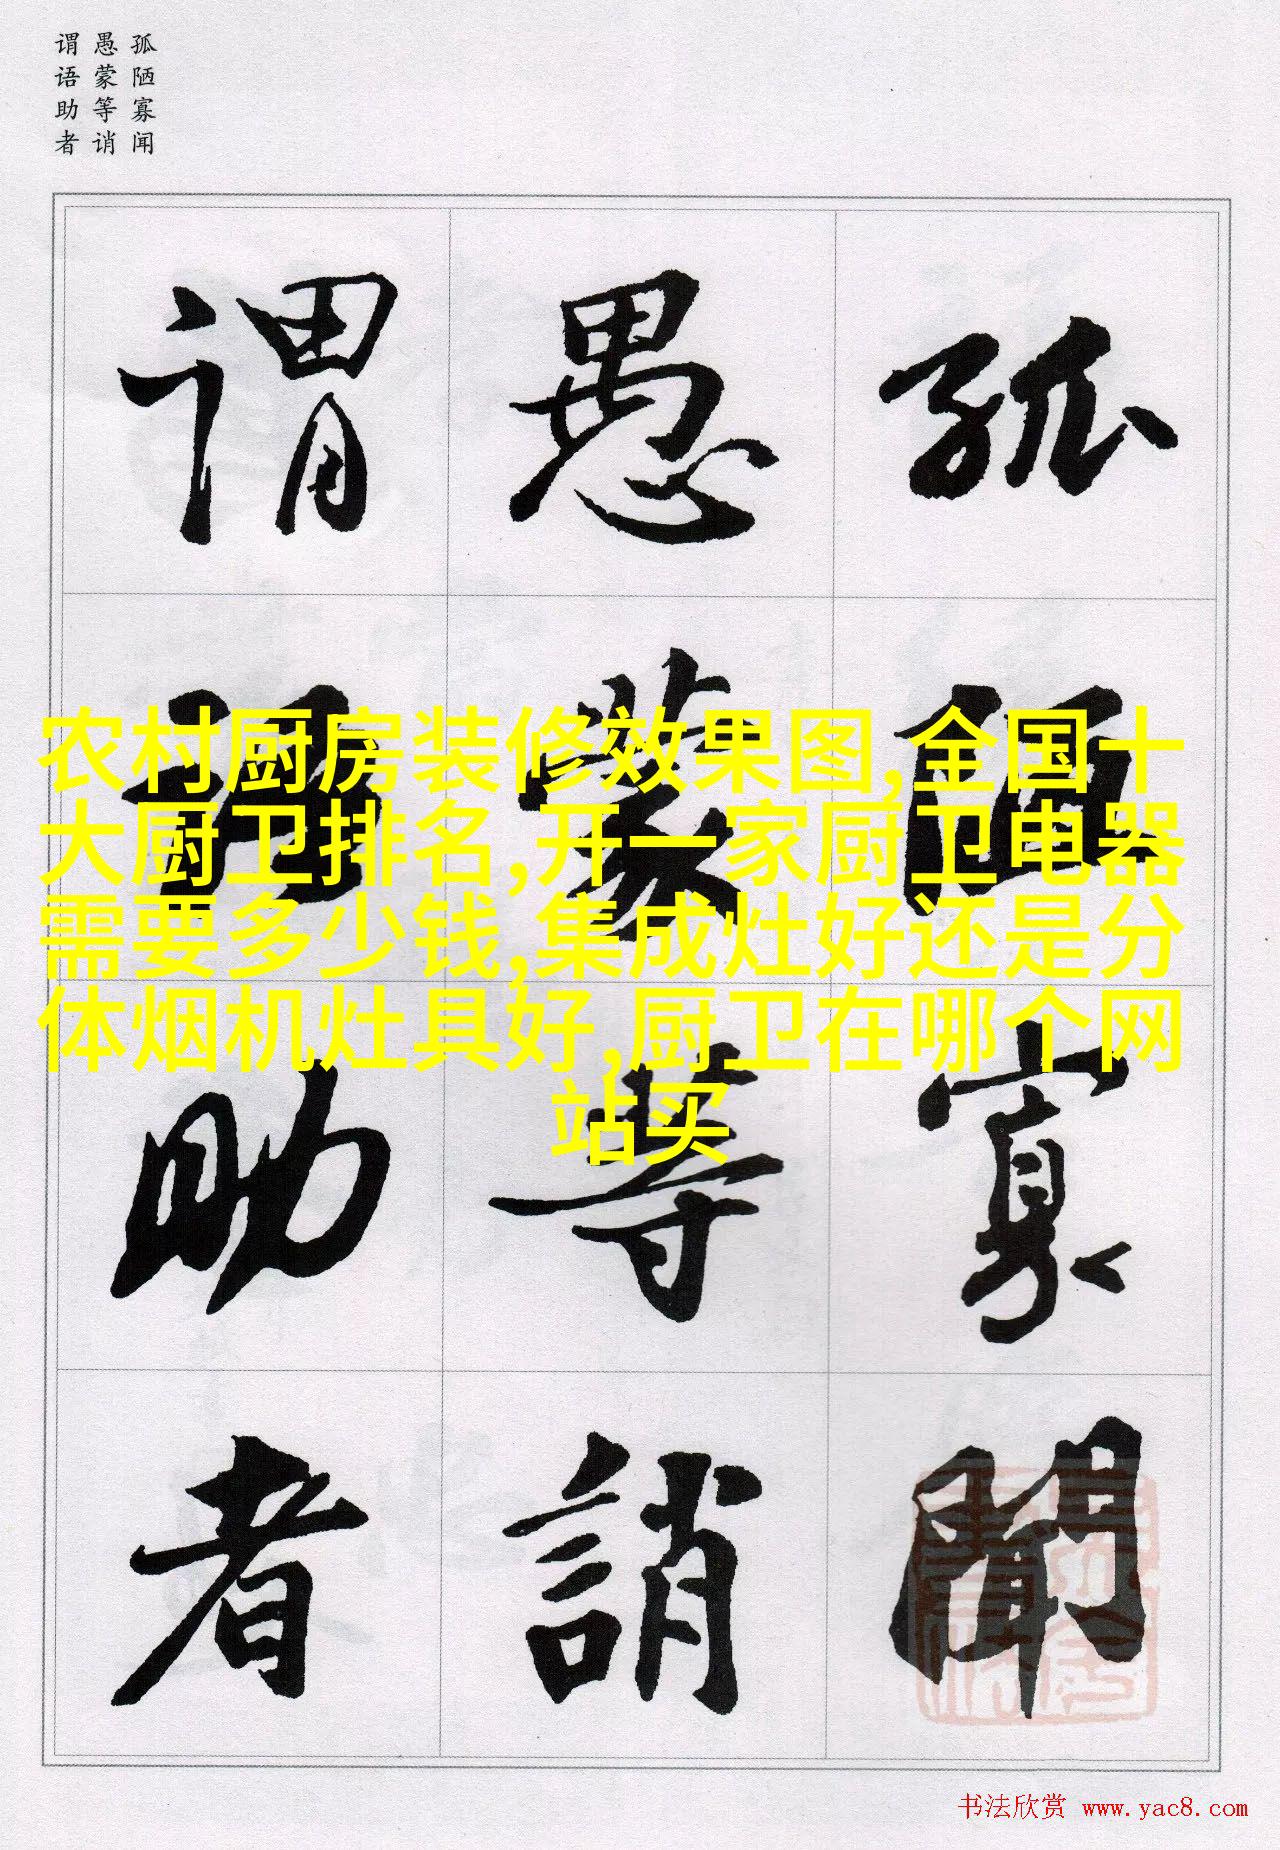 孤陋寡闻
愚蒙等诮
谓语助者
孤陋寡聞
愚蒙等誚
谓语助者
农村厨房装修效果图,全国十
大厨卫排名,开一家厨卫电器
需要多少钱,集成灶好还是分
体烟机灶具好,厨卫在哪个网
站买
书法欣赏 www.yac8.com